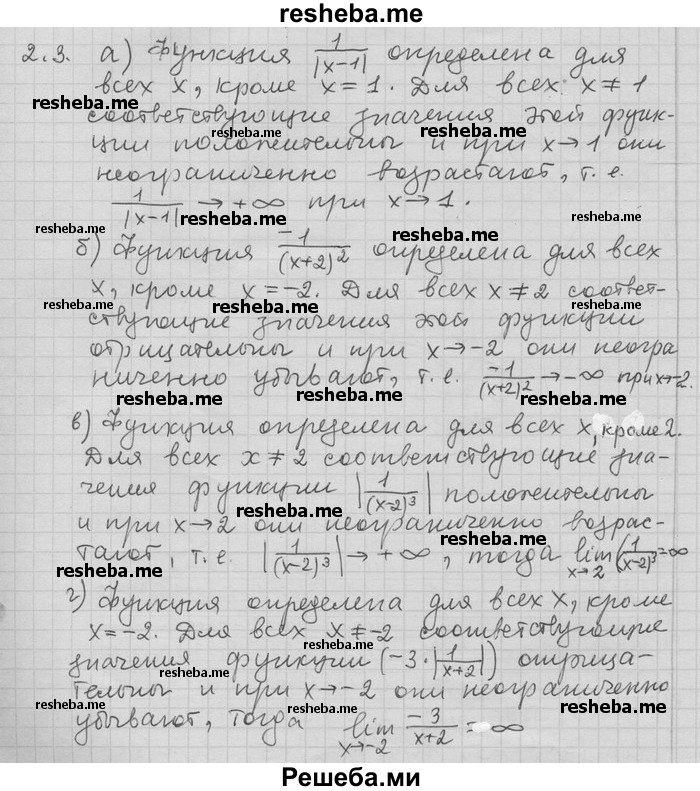 resheba.me
2.3. а) Функция 1/|x-1| определена для
всех x, кроме x=1. Для всех x≠1
соответствующие значения этой функ-
ции положительны и при x→1 они
неограниченно возрастают, т.е.
1/|x-1| → +∞ при x→1.
б) Функция -1/(x+2)² определена для всех
x, кроме x=-2. Для всех x≠2 соответ-
ствующие значения этой функции
отрицательны и при x→-2 они неогра
ниченно убывают, т.е. -1/(x+2)² → -∞ при x→-2.
в) Функция определена для всех x, кроме 2.
Для всех x≠2 соответствующие зна-
чения функции |1/(x-2)³| положительны
и при x→2 они неограниченно возрас-
тают, т.е. |1/(x-2)³| → +∞, тогда lim x→2 (1/(x-2)³=∞
г) Функция определена для всех x, кроме
x=-2. Для всех x≠-2 соответствующие
значения функции (-3·|1/x+2|) отрица-
тельны и при x→-2 они неограниченно
убывают, тогда lim x→-2 -3/x+2 = -∞
Решеба.ми